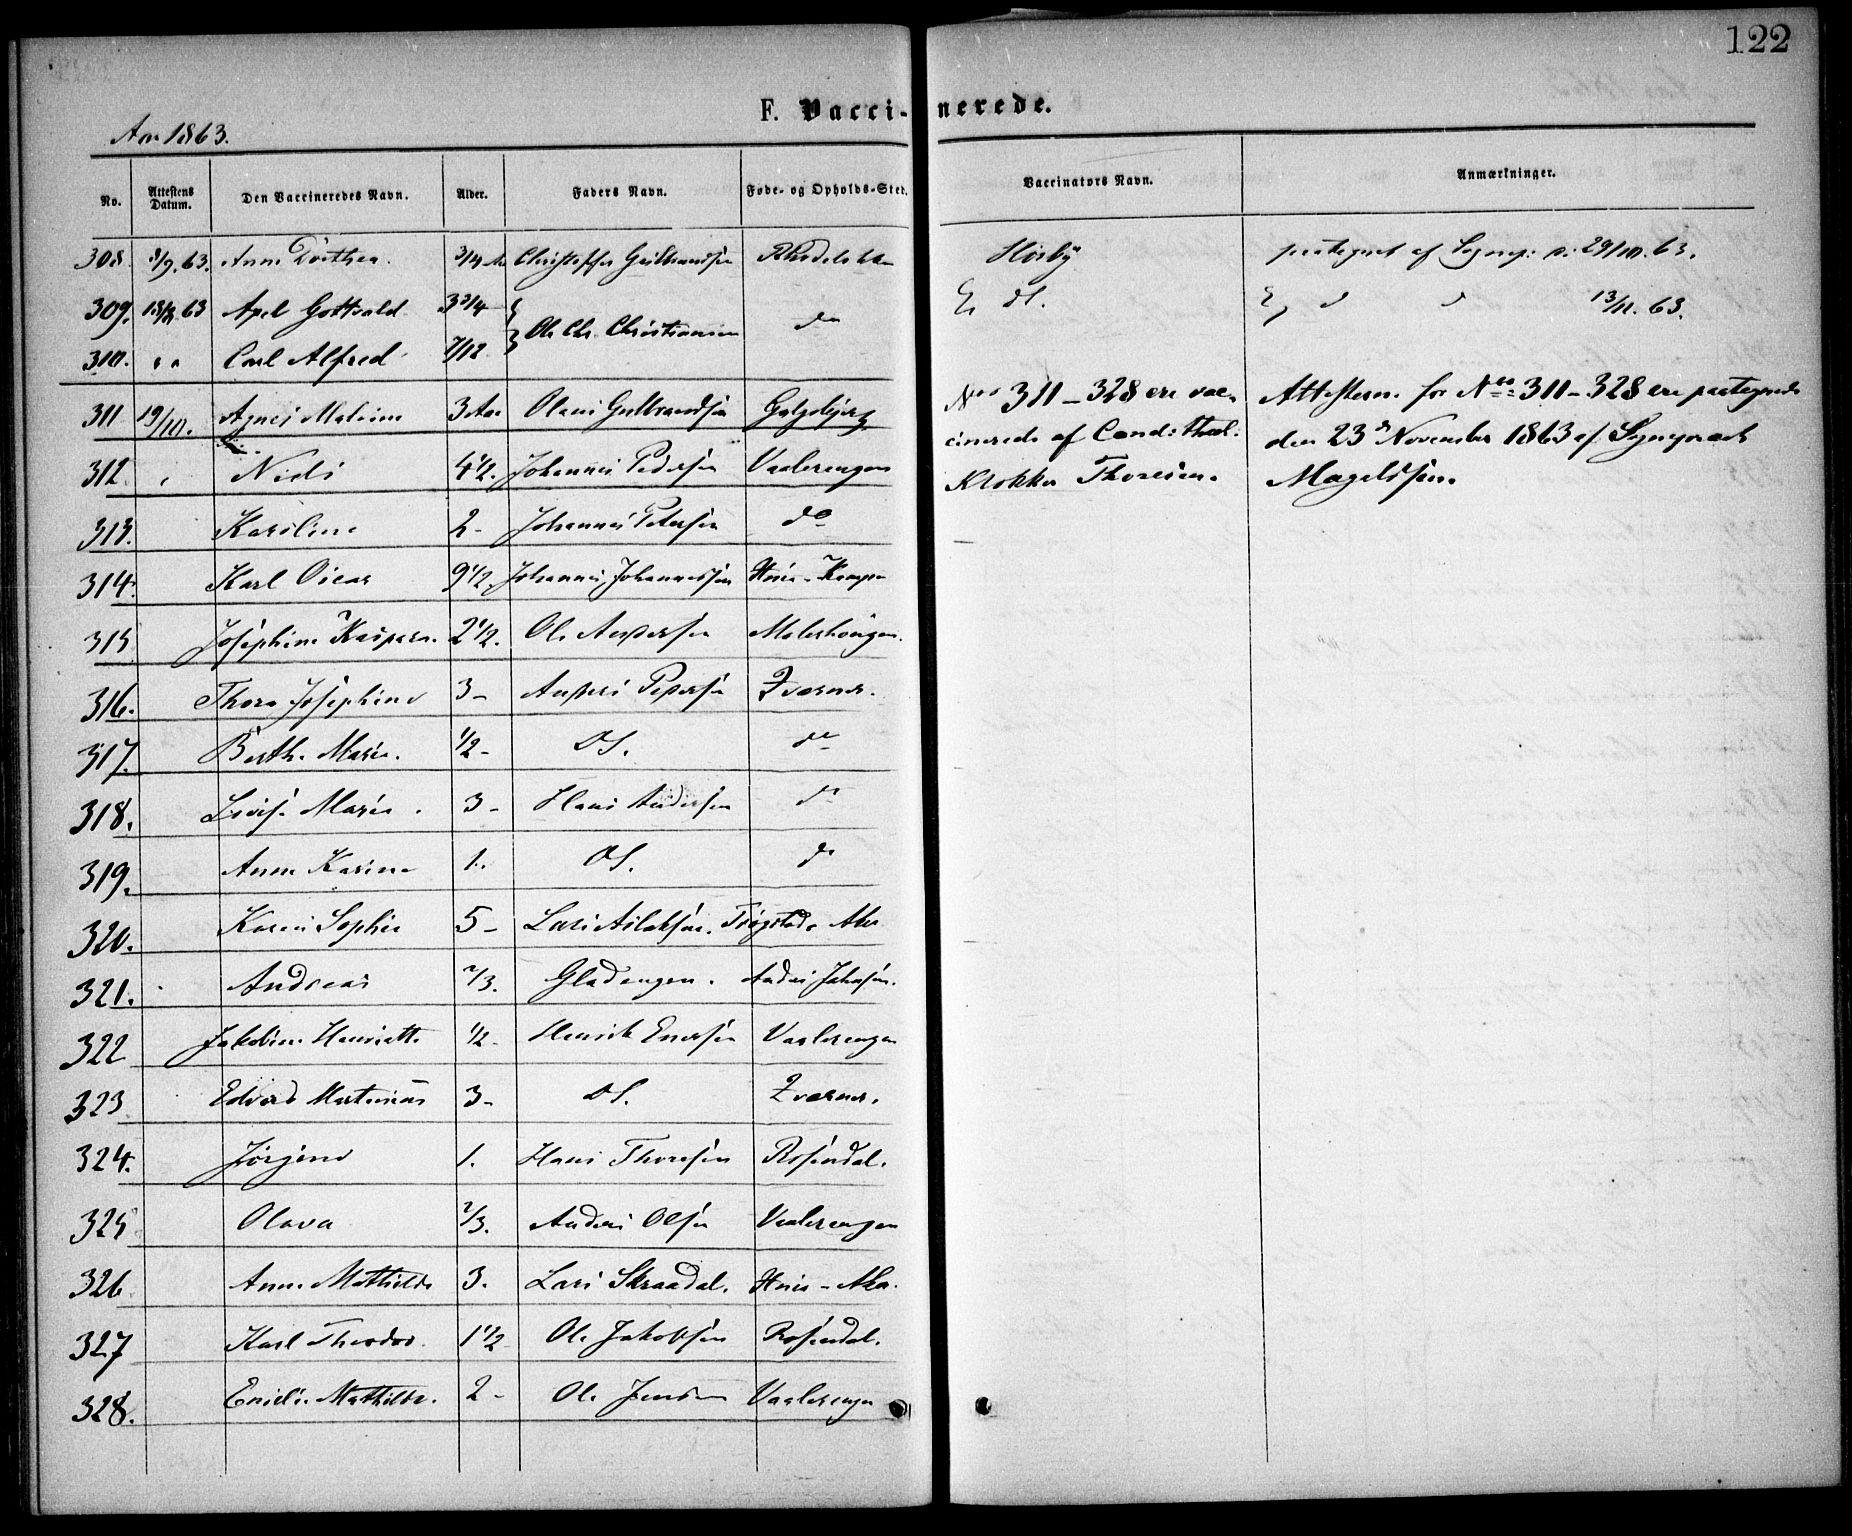 122
F. Vaccinerede.
Aar 1863.
No. Attestens Datum. Den Vaccineredes Navn. Alder. Faders Navn. Føde- og Opholds-Sted. Vaccinators Navn. Anmærkninger.
308. 8/9. 63. Anne Dorthea. 3/4 Aar Christoffer Gulbrandsen Hørbÿ paategnet af Sognep: d: 29/10. 63.
309. 63 Axel Gottvald 3 3/4 Ole Chr. Christiansen do Ej dt. Ej d d 13/11. 63.
310. " " Carl Alfred 7/12
311 19/10. Agnes Malvine 3 Aar Olaus Gulbrandsen Galgebjerg Nos 311 - 328 ere vac-
cinerede af Cand: theol:
Klokker Thoresen.
Attesterne for Nos 311 - 328 ere paategnede
den 23d November 1863 af Sognepræst
Magelssen.
312. " Niels 4 1/2. Johannes Pedersen Vaalerengen
313. Karoline 2 - Johannes Petersen do
314. Karl Oscar 9 1/2. Johannes Johannessen Huus - Kampen
315 Josephine Kaspara. 2 1/2. Ole Andersen Malerhaugen.
316. Thora Josephine 3 - Anders Pedersen Kværner.
317. Berthe Marie. 1/2 - DS. do
318. Lovise Marie. 3 - Hans Andersen do
319. Anne Karine 1. DS. do
320. Karen Sophie 5 - Lars Aslaksen. Trøgstad - Aker
321. Andreas 2/3. Gladengen. Anders Johnsen.
322 Jakobine Henriette 1/2 - Henrik Enersen Vaalerengen
323 Edvard Martinius 3 - DS. Kværner.
324. Jørgine 1. Hans Thoresen Rosendal.
325 Olava 2/3. Anders Olsen Vaalerengen
326 Anne Mathilde 3. Lars Skraadal. Huus - Aker.
327 Karl Theodor. 1 1/2 Ole Jakobsen Rosendal.
328. Emilie Mathilde. 2 - Ole Jensen Vaalerengen